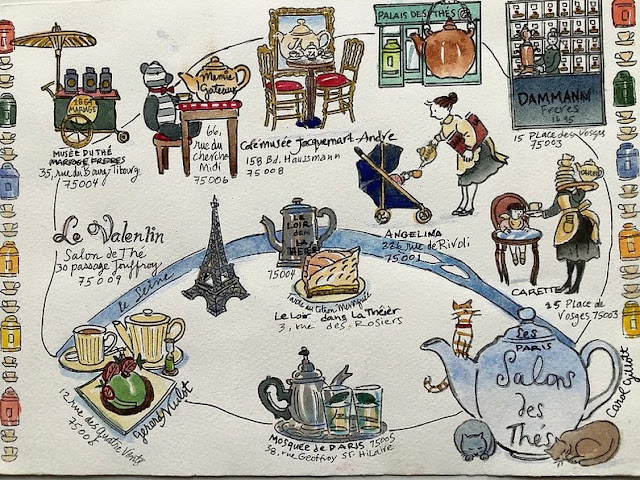 PALAIS DES THÉS
1854
MARIAGE
Mamie
Gateaux
DAMMANN
Frères
15 Place des Vosges
75003
MUSÉE DU THÉ
MARIAGE FRERES
35, rue du Bourg Tibourg
75004
66,
rue du
cherche
Midi
75006
Café musée Jacquemart-Andre
158 Bd. Haussmann
75008
ANGELINA
226 rue de Rivoli
75001
CARETTE
25 Place de
Vosges, 75003
Le Valentin
Salon de Thé
30 passage Jouffroy
75009
la Seine
LE
LOIR
dans
LA
75004
Le Loir dans La Théier
3, rue des Rosiers
gerard Mulot
12 rue des quatre Vents
75006
MOSQUÉE de PARIS 75005
38, rue Geoffroy ST. Hilaire
Les
PARIS
Salons
des
Thés
Carol Gillott